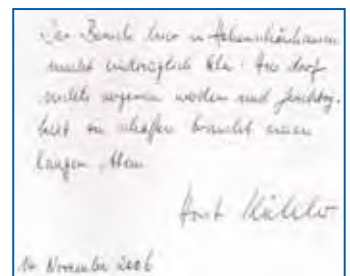 Der Besuch hier in Hohenschönhausen
macht unerträglich klar: Hier darf
nichts vergessen werden und
zu schaffen braucht einen
langen Atem.
Horst Köhler
14. November 2006